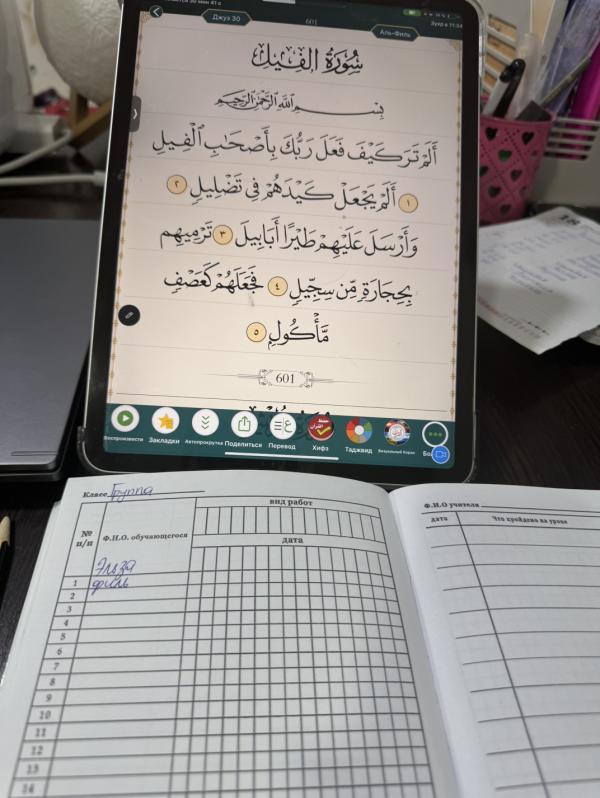 Джуз 30
601
Аль-Филь
Зухр в 11:34
سُورَةُ الفِيلِ
بِسْمِ اللَّهِ الرَّحْمَٰنِ الرَّحِيمِ
أَلَمْ تَرَ كَيْفَ فَعَلَ رَبُّكَ بِأَصْحَابِ الْفِيلِ
١ أَلَمْ يَجْعَلْ كَيْدَهُمْ فِي تَضْلِيلٍ ٢
وَأَرْسَلَ عَلَيْهِمْ طَيْرًا أَبَابِيلَ ٣ تَرْمِيهِم
بِحِجَارَةٍ مِّن سِجِّيلٍ ٤ فَجَعَلَهُمْ كَعَصْفٍ
مَّأْكُولٍ ٥
601
Воспроизвести
Закладки
Автопрокрутка
Поделиться
Перевод
Хифз
Таджвид
Визуальный Коран
Класс Группа
№ п/п
Ф.И.О. обучающегося
вид работ
дата
Эльза
1 филь
2
3
4
5
6
7
8
9
10
11
12
13
14
Ф.И.О. учителя
дата
Что пройдено на уроке